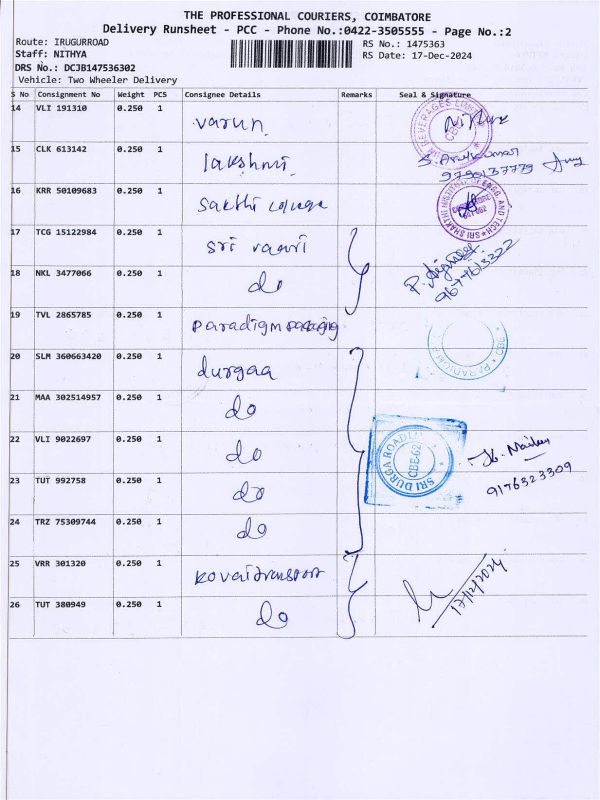 THE PROFESSIONAL COURIERS, COIMBATORE
Delivery Runsheet - PCC - Phone No.:0422-3505555 - Page No.:2
Route: IRUGURROAD RS No.: 1475363
Staff: NITHYA RS Date: 17-Dec-2024
DRS No.: DCJB147536302
Vehicle: Two Wheeler Delivery
S No Consignment No Weight PCS Consignee Details Remarks Seal & Signature
14 VLI 191310 0.250 1 varun
15 CLK 613142 0.250 1 lakshmi S. Arulkumar
9790137779
16 KRR 50109683 0.250 1 Sakthi college
17 TCG 15122984 0.250 1 Sri vaari
18 NKL 3477066 0.250 1 do 9677613322
19 TVL 2865785 0.250 1 Paradigm PARADIGM CBE
20 SLM 360663420 0.250 1 durgaa
21 MAA 302514957 0.250 1 do
22 VLI 9022697 0.250 1 do SRI DURGA CBE-62
9176323309
23 TUT 992758 0.250 1 do
24 TRZ 75309744 0.250 1 do
25 VRR 301320 0.250 1 kovai transport 17/12/2024
26 TUT 380949 0.250 1 do